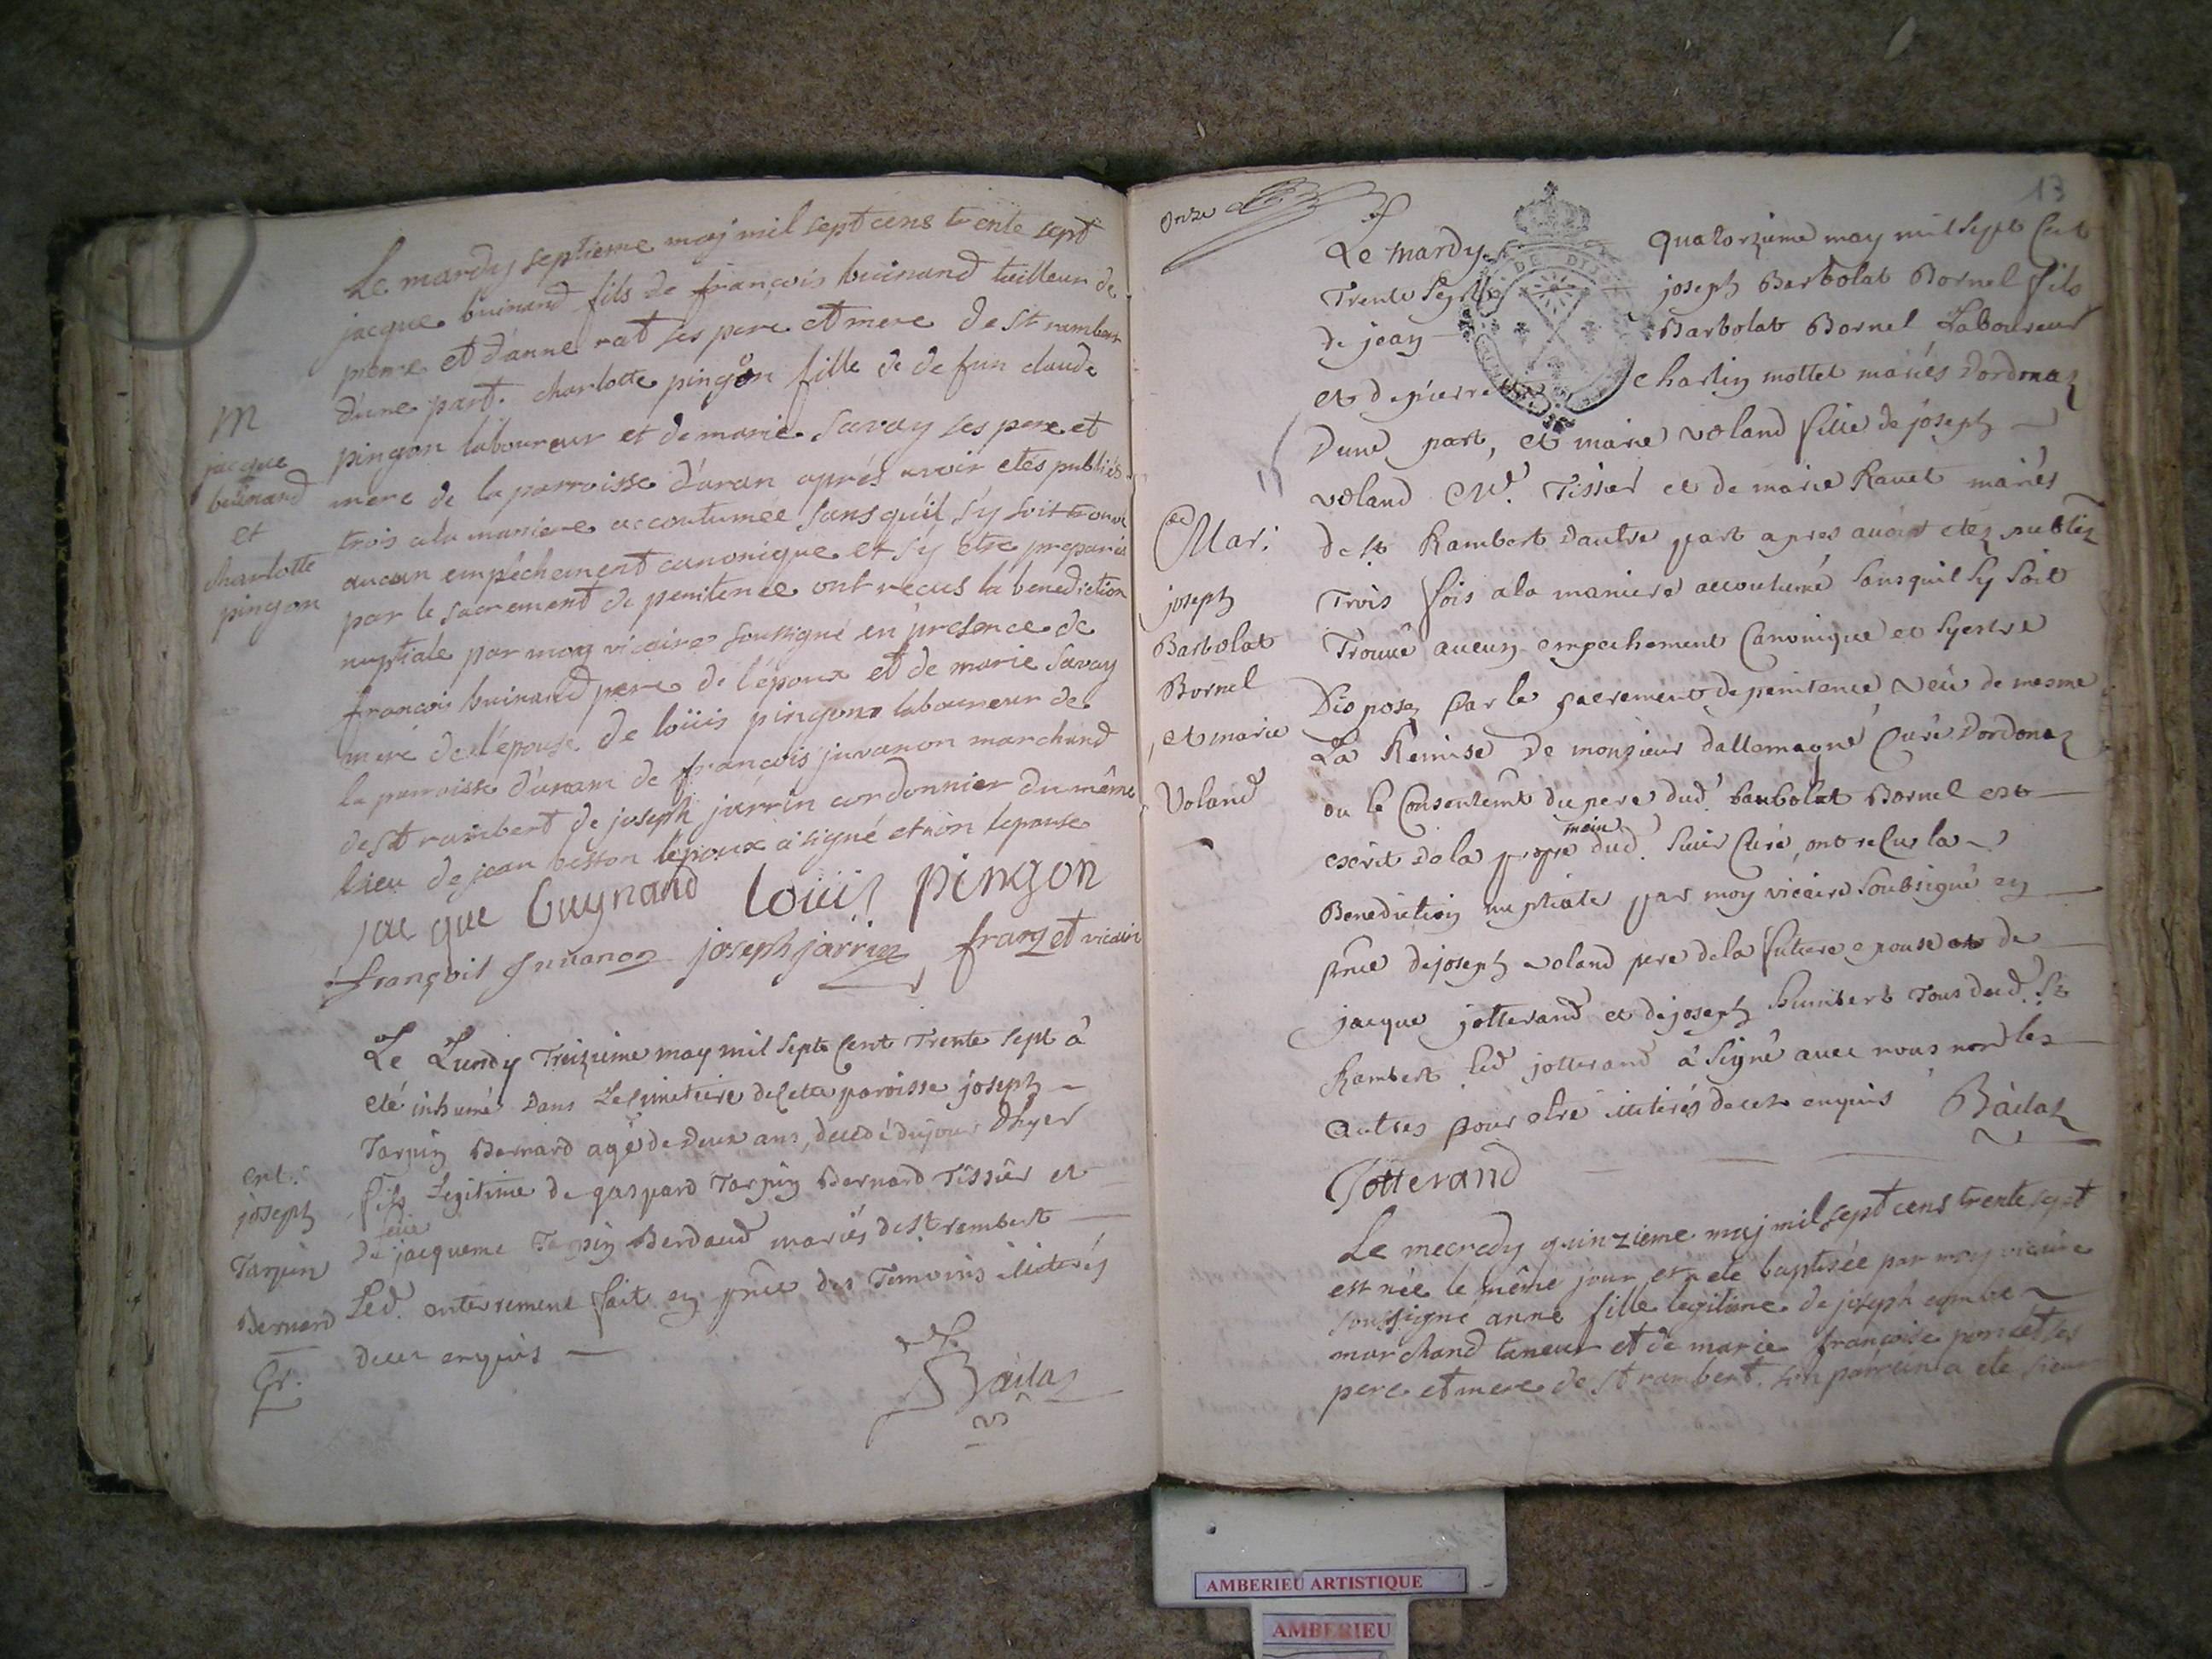 Le mardy septieme maj mil sept cens trente sept
jacque buinand fils de françois buinand tailleur de
pierre et d'anne rat ses pere et mere de St rambert
d'une part. charlotte pingon fille de defun claude
pingon laboureur et de marie Savay ses pere et
mere de la parroisse d'aran aprés avoir etés publiés
trois a la maniere accoutumée sans qu'il s'y soit trouvé
aucun empéchement canonique et s'y etre preparés
par le sacrement de penitence ont reçus la benediction
nuptiale par moy vicaire soussigné en présence de
françois buinand pere de l'époux et de marie Savay
mere de l'épouse de loüis pingon laboureur de
la parroisse d'aran de françois juvanon marchand
de St rambert de joseph járrin cordonnier du même
lieu de jean besson l'époux à signé et non l'epouse
jacque buynand loüis pingon
françois Juuanon joseph jarrin franzet vicaire
M
jacque
buinand
et
charlotte
pingon
Le Lundy Treizieme may mil Sept Cent Trente Sept à
eté inhumé Dans Le Cimetiere de Cette paroisse joseph
Tarpin Bernard agé de Deux ans, decedé du jour D'hyer
fils Legitime de gaspard Tarpin Bernard Tissier et
de jacqueme Tarpin Berdaud mariés de St. rembert
Led. enterrement fait en pnce des Temoins illiterés
de ce enquis
Bailaz
ent.
joseph
Tarpin
Bernard
Gr.
Onze
13
Le Mardy quatorzieme may mil Sept Cent
Trente Sept joseph Barbolat Bornel fils
de jean Barbolat Bornel Laboureur
et de pierrette Charlin mottet mariés Dordonaz
Dune part, et marie voland fille de joseph
voland Md. Tissier et de marie Ravet mariés
de St. Rambert Dautre part apres avoir etez publiéz
Trois fois a la maniere accoutumé Sans quil Sy Soit
Trouuê aucun empechement Canonique et Syestre
Disposez par le sacrement de penitence veû de mesme
La Remise De monsieur dallemagne Curé Dordonaz
ou le Consentemt du pere dud. barbolat Bornel est
escrit De la propre main dud. Sieur Curé, ont reçus la
Benediction nuptiale par moy vicaire Soubsigné en
pnce de joseph voland pere de la future epouse de
jacque jotterand et de joseph humbert Tous dud. St
Rambert Led jotterand à Signé avec nous non les
autres pour etre illiterés de cet enquis Bailaz
Jotterand
Mar.
joseph
Barbolat
Bornel
et marie
Voland
Le mecredy quinzieme maj mil sept cens trente sept
est née le même jour et a eté baptisée par moy vicaire
soussigné anne fille legitime de joseph
marchand taneur et de marie françoise poncet ses
pere et mere de St rambert. son parrain a eté sieur
AMBERIEU ARTISTIQUE
AMBERIEU